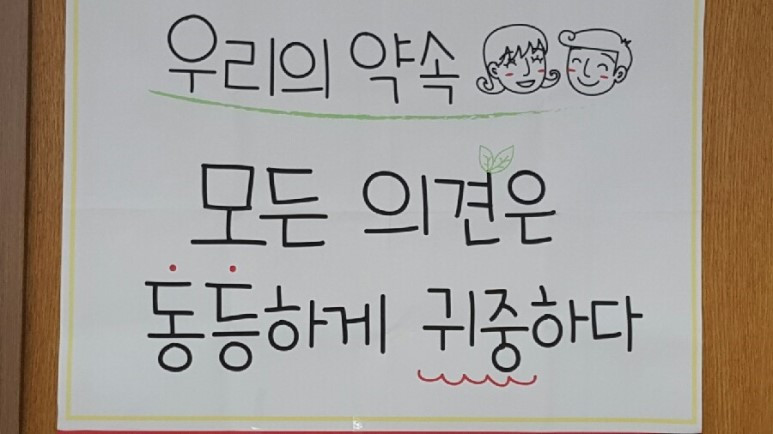 우리의 약속
모든 의견은
동등하게 귀중하다